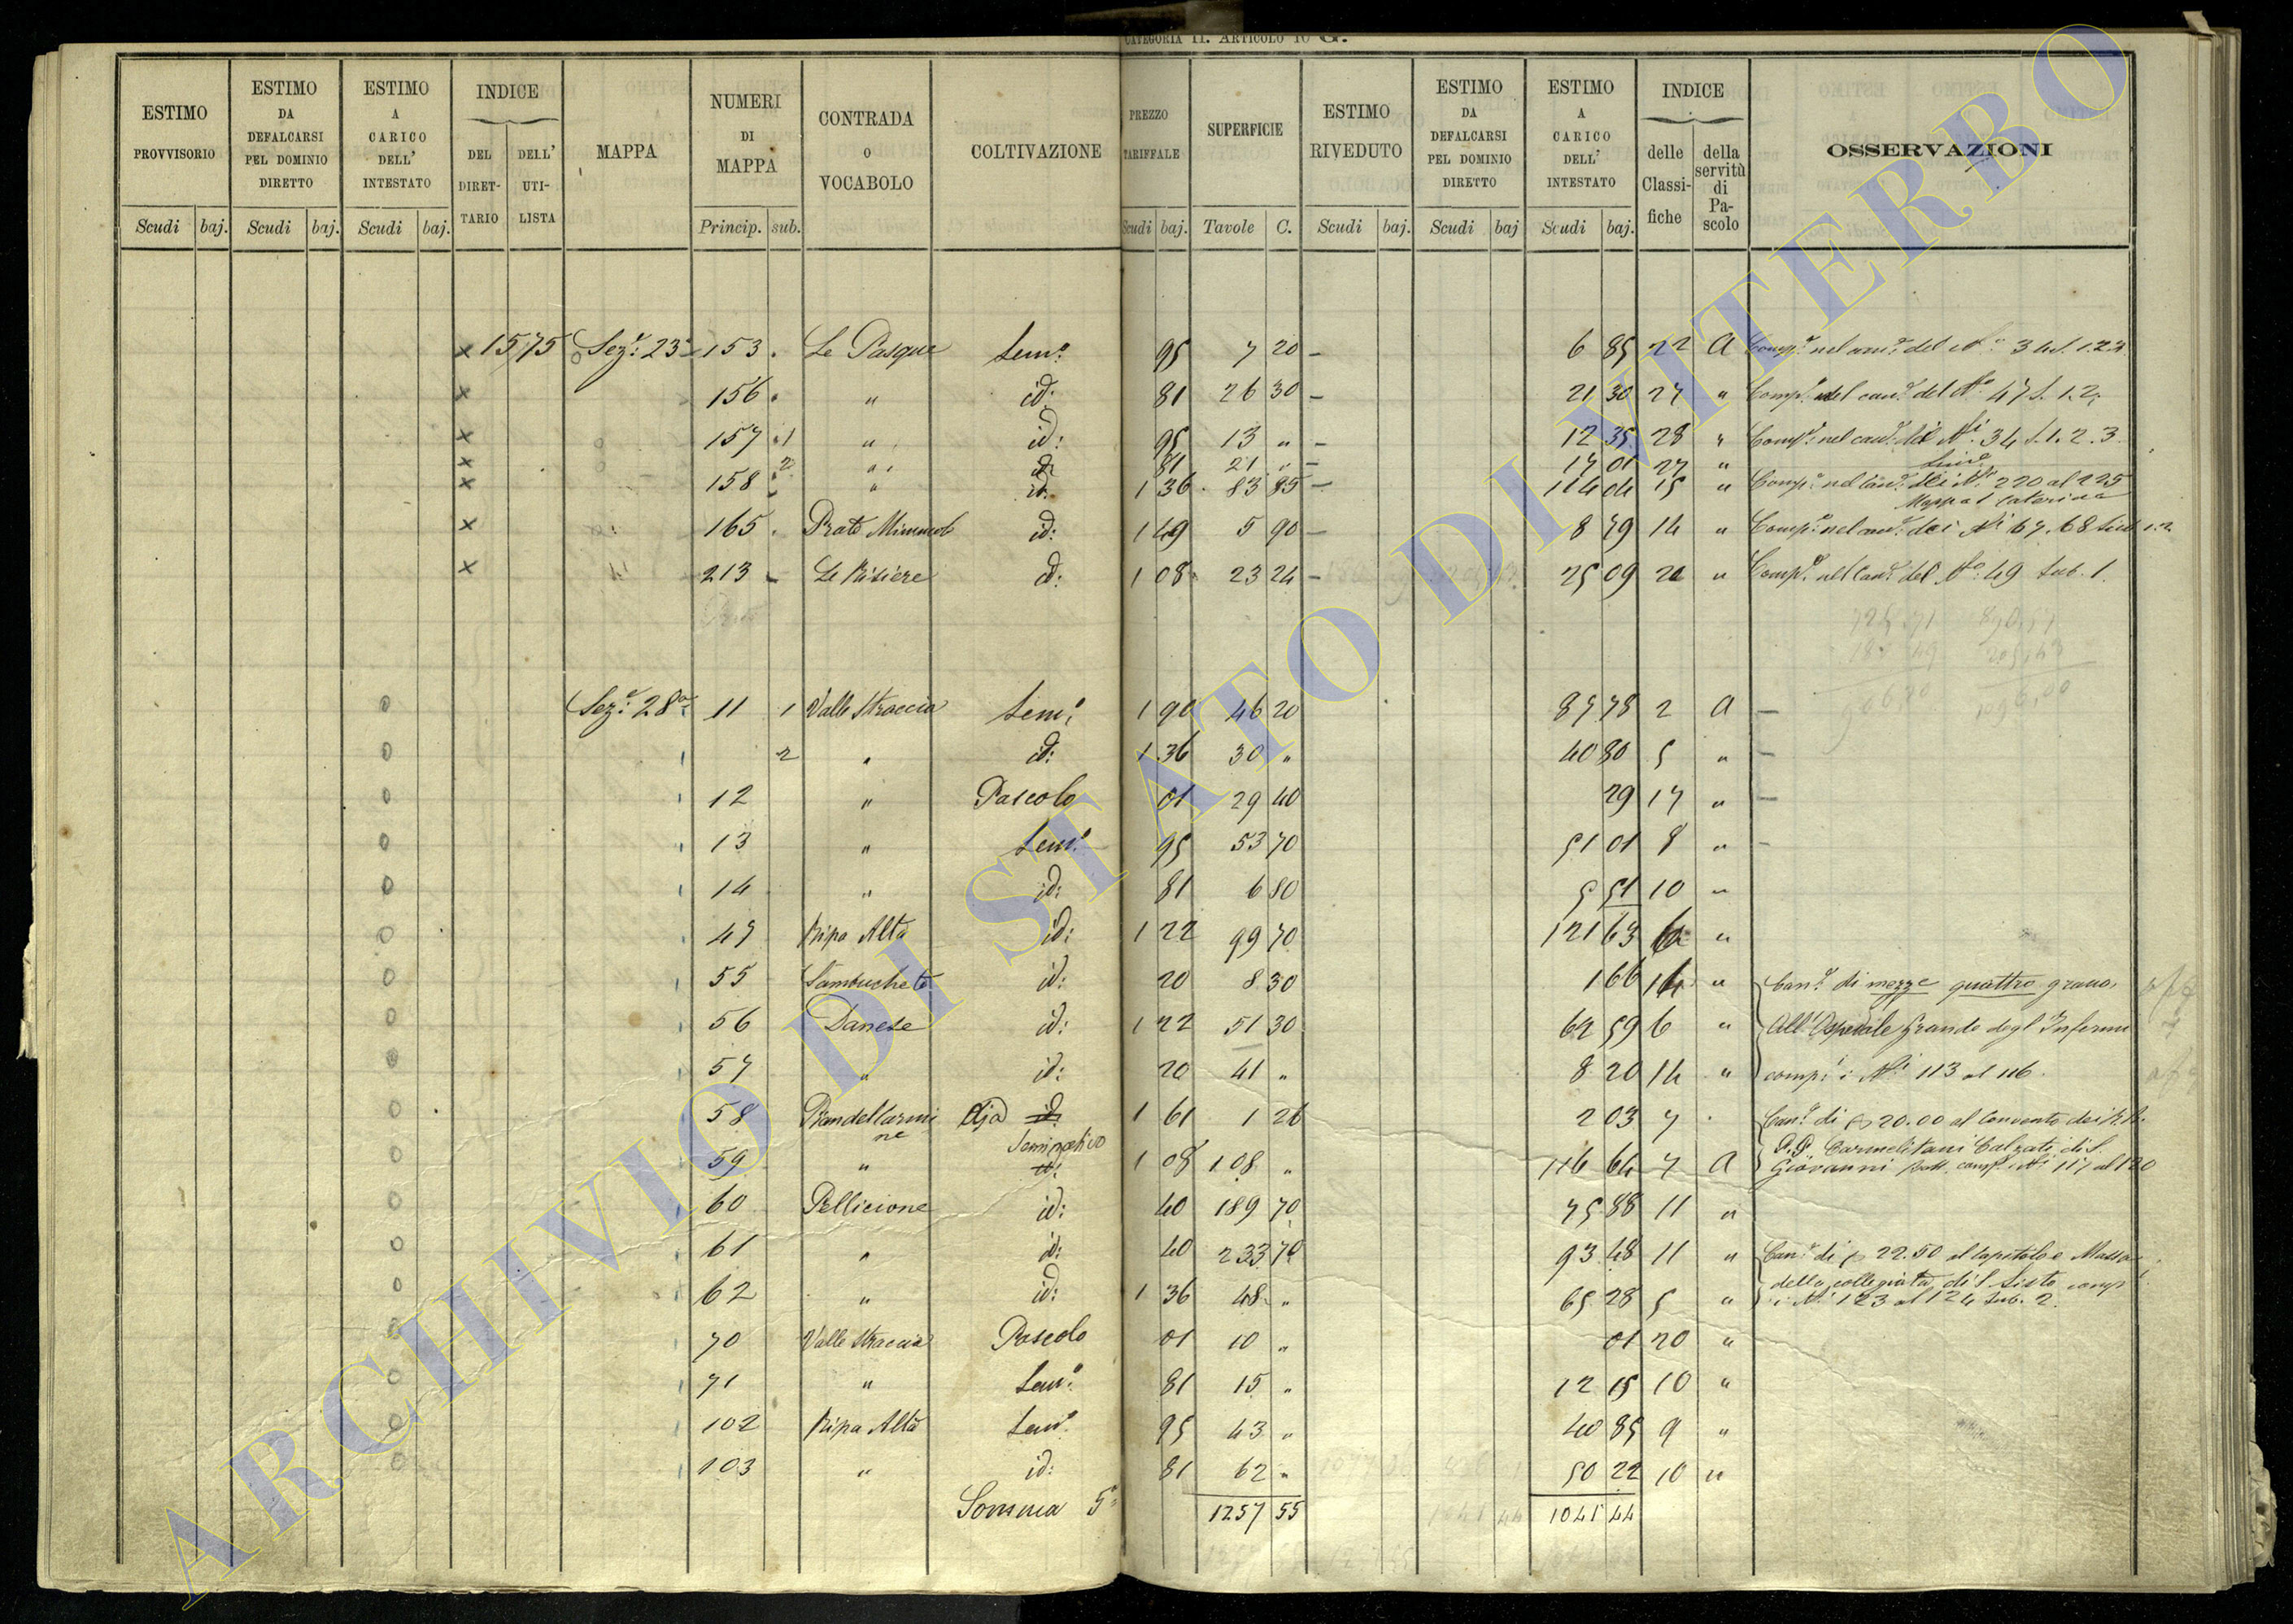 CATEGORIA II. ARTICOLO 10 G.
ESTIMO PROVVISORIO Scudi baj.
ESTIMO DA DEFALCARSI PEL DOMINIO DIRETTO Scudi baj.
ESTIMO A CARICO DELL' INTESTATO Scudi baj.
INDICE DEL DIRET-TARIO DELL' UTI-LISTA
MAPPA
NUMERI DI MAPPA Princip. sub.
CONTRADA O VOCABOLO
COLTIVAZIONE
PREZZO TARIFFALE Scudi baj.
SUPERFICIE Tavole C.
ESTIMO RIVEDUTO Scudi baj.
ESTIMO DA DEFALCARSI PEL DOMINIO DIRETTO Scudi baj
ESTIMO A CARICO DELL' INTESTATO Scudi baj.
INDICE delle Classi-fiche della servitù di Pa-scolo
OSSERVAZIONI
x 1575 Sez.e 23a 153 Le Pasque Sem.o 95 7 20 – 6 85 22 A
x 156 " id: 81 26 30 – 21 30 27 " Comp.o nel can.e del N.o 47 S. 1.2.
x 157 1 " id: 95 13 " – 12 35 28 " Comp.o nel can.e dei N.i 34 S. 1. 2. 3.
x 2 " id: 81 21 " – 17 01 27 "
x 158 " id: 1 36 83 85 – 114 04 15 " Comp.o nel can.e dei N.i 220 al 225
Mappa S Caterina
x 165 Prato id: 1 49 5 90 – 8 79 14 " Comp.o nel can.e dei N.i 67. 68 sub. 1.2
x 213 Le Risiere id: 1 08 23 24 – 25 09 " Comp.o nel can.e del N.o 49 Sub. 1.
0 Sez.e 28a 11 1 Valle Straccia Sem.o 1 90 46 20 87 78 2 A –
0 2 " id: 1 36 30 " 40 80 5 " –
0 12 " Pascolo 01 29 40 29 17 " –
0 13 " Sem.o 95 53 70 51 01 8 " –
0 14 " id: 81 6 80 5 51 10 "
0 47 Ripa Alta id: 1 22 99 70 121 63 6 "
0 55 Sambucheto id: 20 8 30 1 66 14 " Can.e di mezze quattro grano
0 56 Danese id: 1 22 51 30 62 59 6 " All'Ospedale Grande degl'Infermi
0 57 " id: 20 41 " 8 20 14 " comp.i i N.i 113 al 116.
0 58 Aja id: 1 61 1 26 2 03 7 Can.e di 20.00 al Convento dei
0 59 " Seminativo id: 1 08 108 " 116 64 7 A P.P Carmelitani Calzati di S.
Giovanni comp. i N.i 117 al 120
0 60 Pellicione id: 40 189 70 75 88 11 "
0 61 " id: 40 233 70 93 48 11 " Can.e di 22.50 al Capitolo e Massa
0 62 " id: 1 36 48 " 65 28 5 " della collegiata di S. Sisto comp
i N.i 123 al 124 sub. 2.
0 70 Valle Straccia Pascolo 01 10 " 01 20 "
0 71 " Sem.o 81 15 " 12 15 10 "
0 102 Ripa Alta Sem.o 95 43 " 40 85 9 "
0 103 " id: 81 62 " 50 22 10 "
Somma 5a 1257 55 1041 44
ARCHIVIO DI STATO DI VITERBO